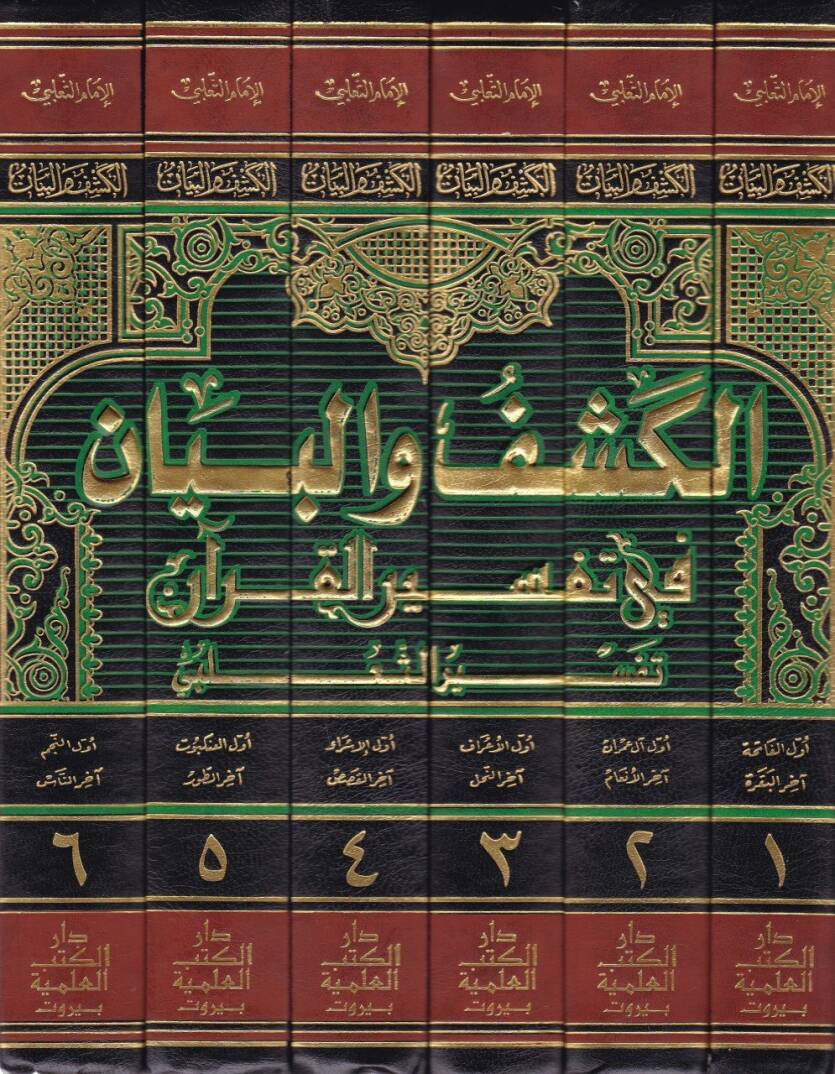 الإمام الثعلبي الإمام الثعلبي الإمام الثعلبي الإمام الثعلبي الإمام الثعلبي الإمام الثعلبي
الكشف والبيان الكشف والبيان الكشف والبيان الكشف والبيان الكشف والبيان الكشف والبيان
الكشف والبيان
في تفسير القرآن
تفسير الثعلبي
أول الفاتحة
آخر البقرة
أول آل عمران
آخر الأنعام
أول الأعراف
آخر النحل
أول الإسراء
آخر القصص
أول العنكبوت
آخر الطور
أول النجم
آخر الناس
١ ٢ ٣ ٤ ٥ ٦
دار دار دار دار دار دار
الكتب الكتب الكتب الكتب الكتب الكتب
العلمية العلمية العلمية العلمية العلمية العلمية
بيروت بيروت بيروت بيروت بيروت بيروت